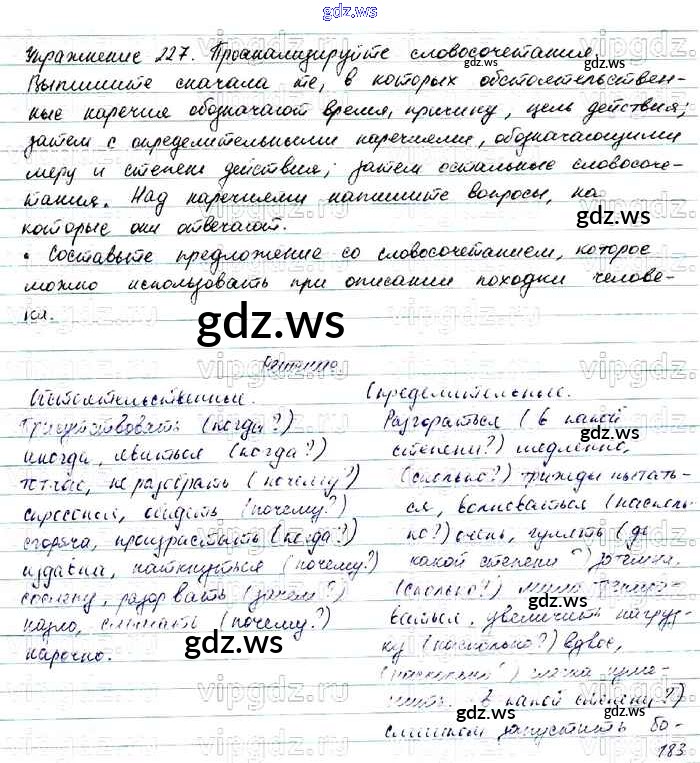 gdz.ws
Упражнение 227. Проанализируйте словосочетания.
Выпишите сначала те, в которых обстоятельствен-
ные наречия обозначают время, причину, цель действия;
затем с определительными наречиями, обозначающими
меру и степень действия; затем остальные словосоче-
тания. Над наречиями напишите вопросы, на
которые они отвечают.
• Составьте предложение со словосочетанием, которое
можно использовать при описании походки челове-
ка.
gdz.ws
Решение
Обстоятельственные.
Присутствовать (когда?)
иногда, явиться (когда?)
тотчас, не разобрать (почему?)
спросонья, обидеть (почему?)
сгоряча, произрастать (когда?)
издавна, наткнуться (почему?)
сослепу, разорвать (зачем?)
назло, сломать (почему?)
нарочно.
Определительные.
Разгораться (в какой
степени?) медленно,
(сколько?) трижды пытать-
ся, волноваться (насколь-
ко?) очень, гулять (до
какой степени?) дотемна,
(сколько?) много
увеличить нагруз-
ку (насколько?) вдвое,
(насколько?) слегка
в какой степени?)
слишком запустить бо-
183